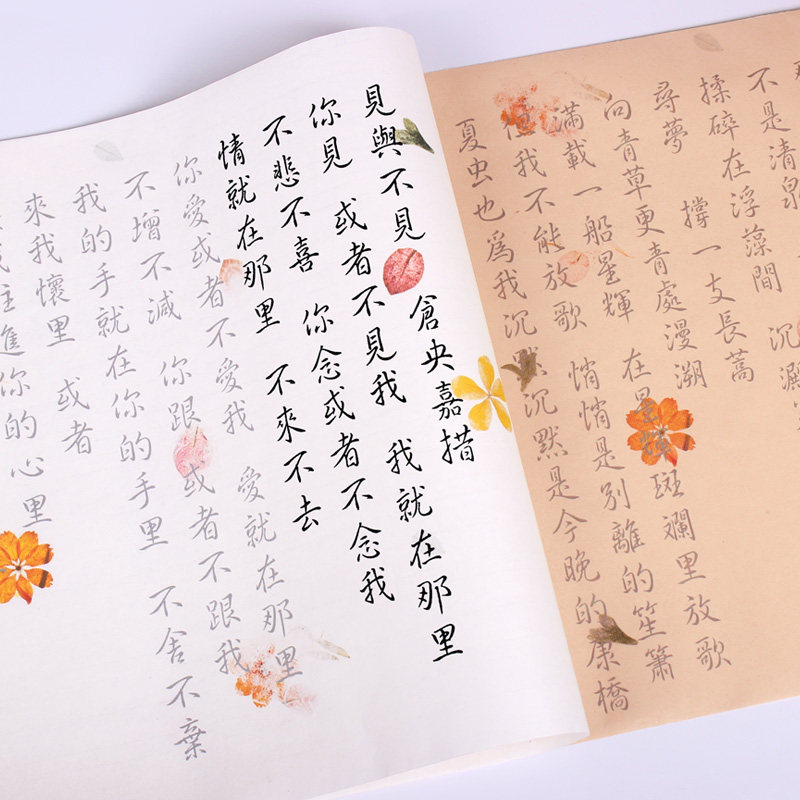 不是清泉
揉碎在浮藻間 沉澱
尋夢 撐一支長蒿
向青草更青處漫溯
滿載一船星輝 在星輝斑斕里放歌
但我不能放歌 悄悄是別離的笙簫
夏虫也爲我沉默 沉默是今晚的康橋
見與不見 倉央嘉措
你見 或者不見我 我就在那里
不悲不喜 你念或者不念我
情就在那里 不來不去
你愛或者不愛我 愛就在那里
不增不減 你跟 或者不跟我
我的手就在你的手里 不舍不棄
來我懷里 或者
我住進你的心里